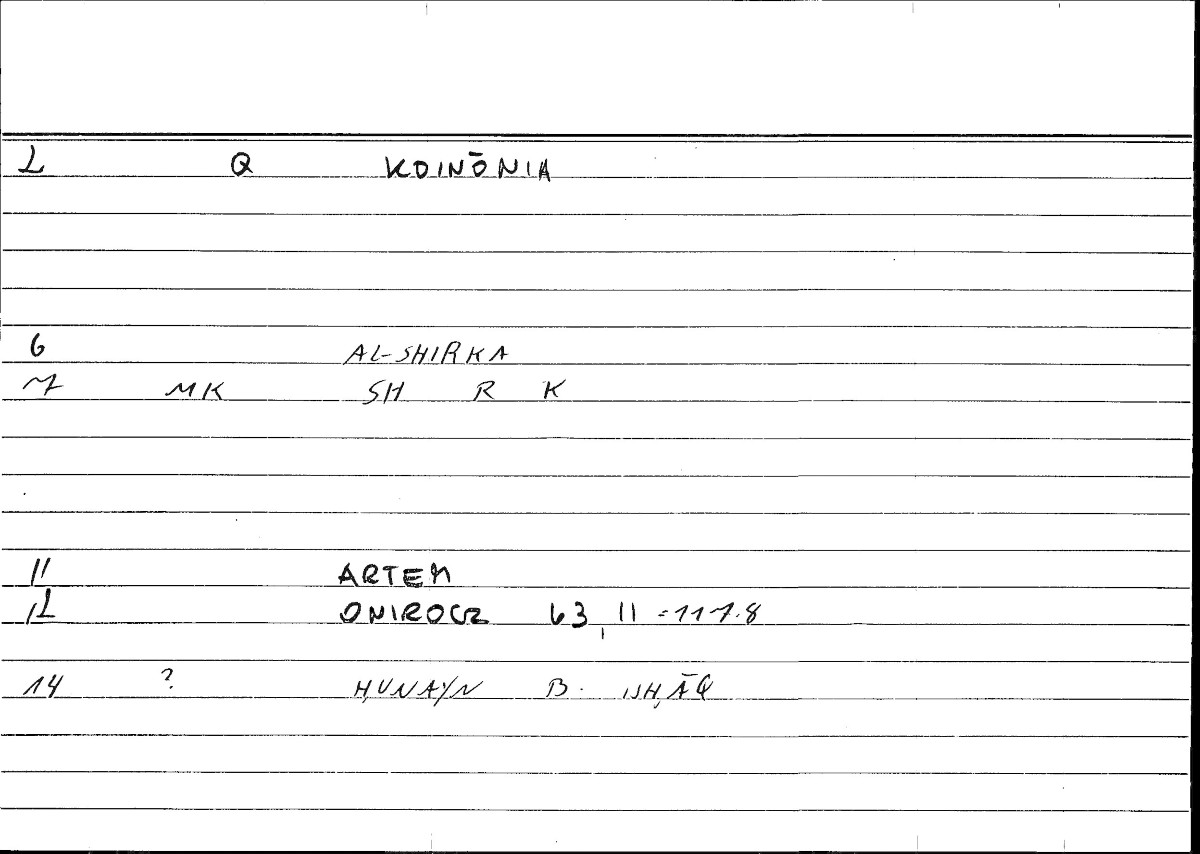 2 Q KOINŌNIA
6 AL-SHIRKA
7 MK SH R K
11 ARTEM
12 ONIROCR 63, 11 = 117.8
14 ? ḤUNAYN B. ISḤĀQ